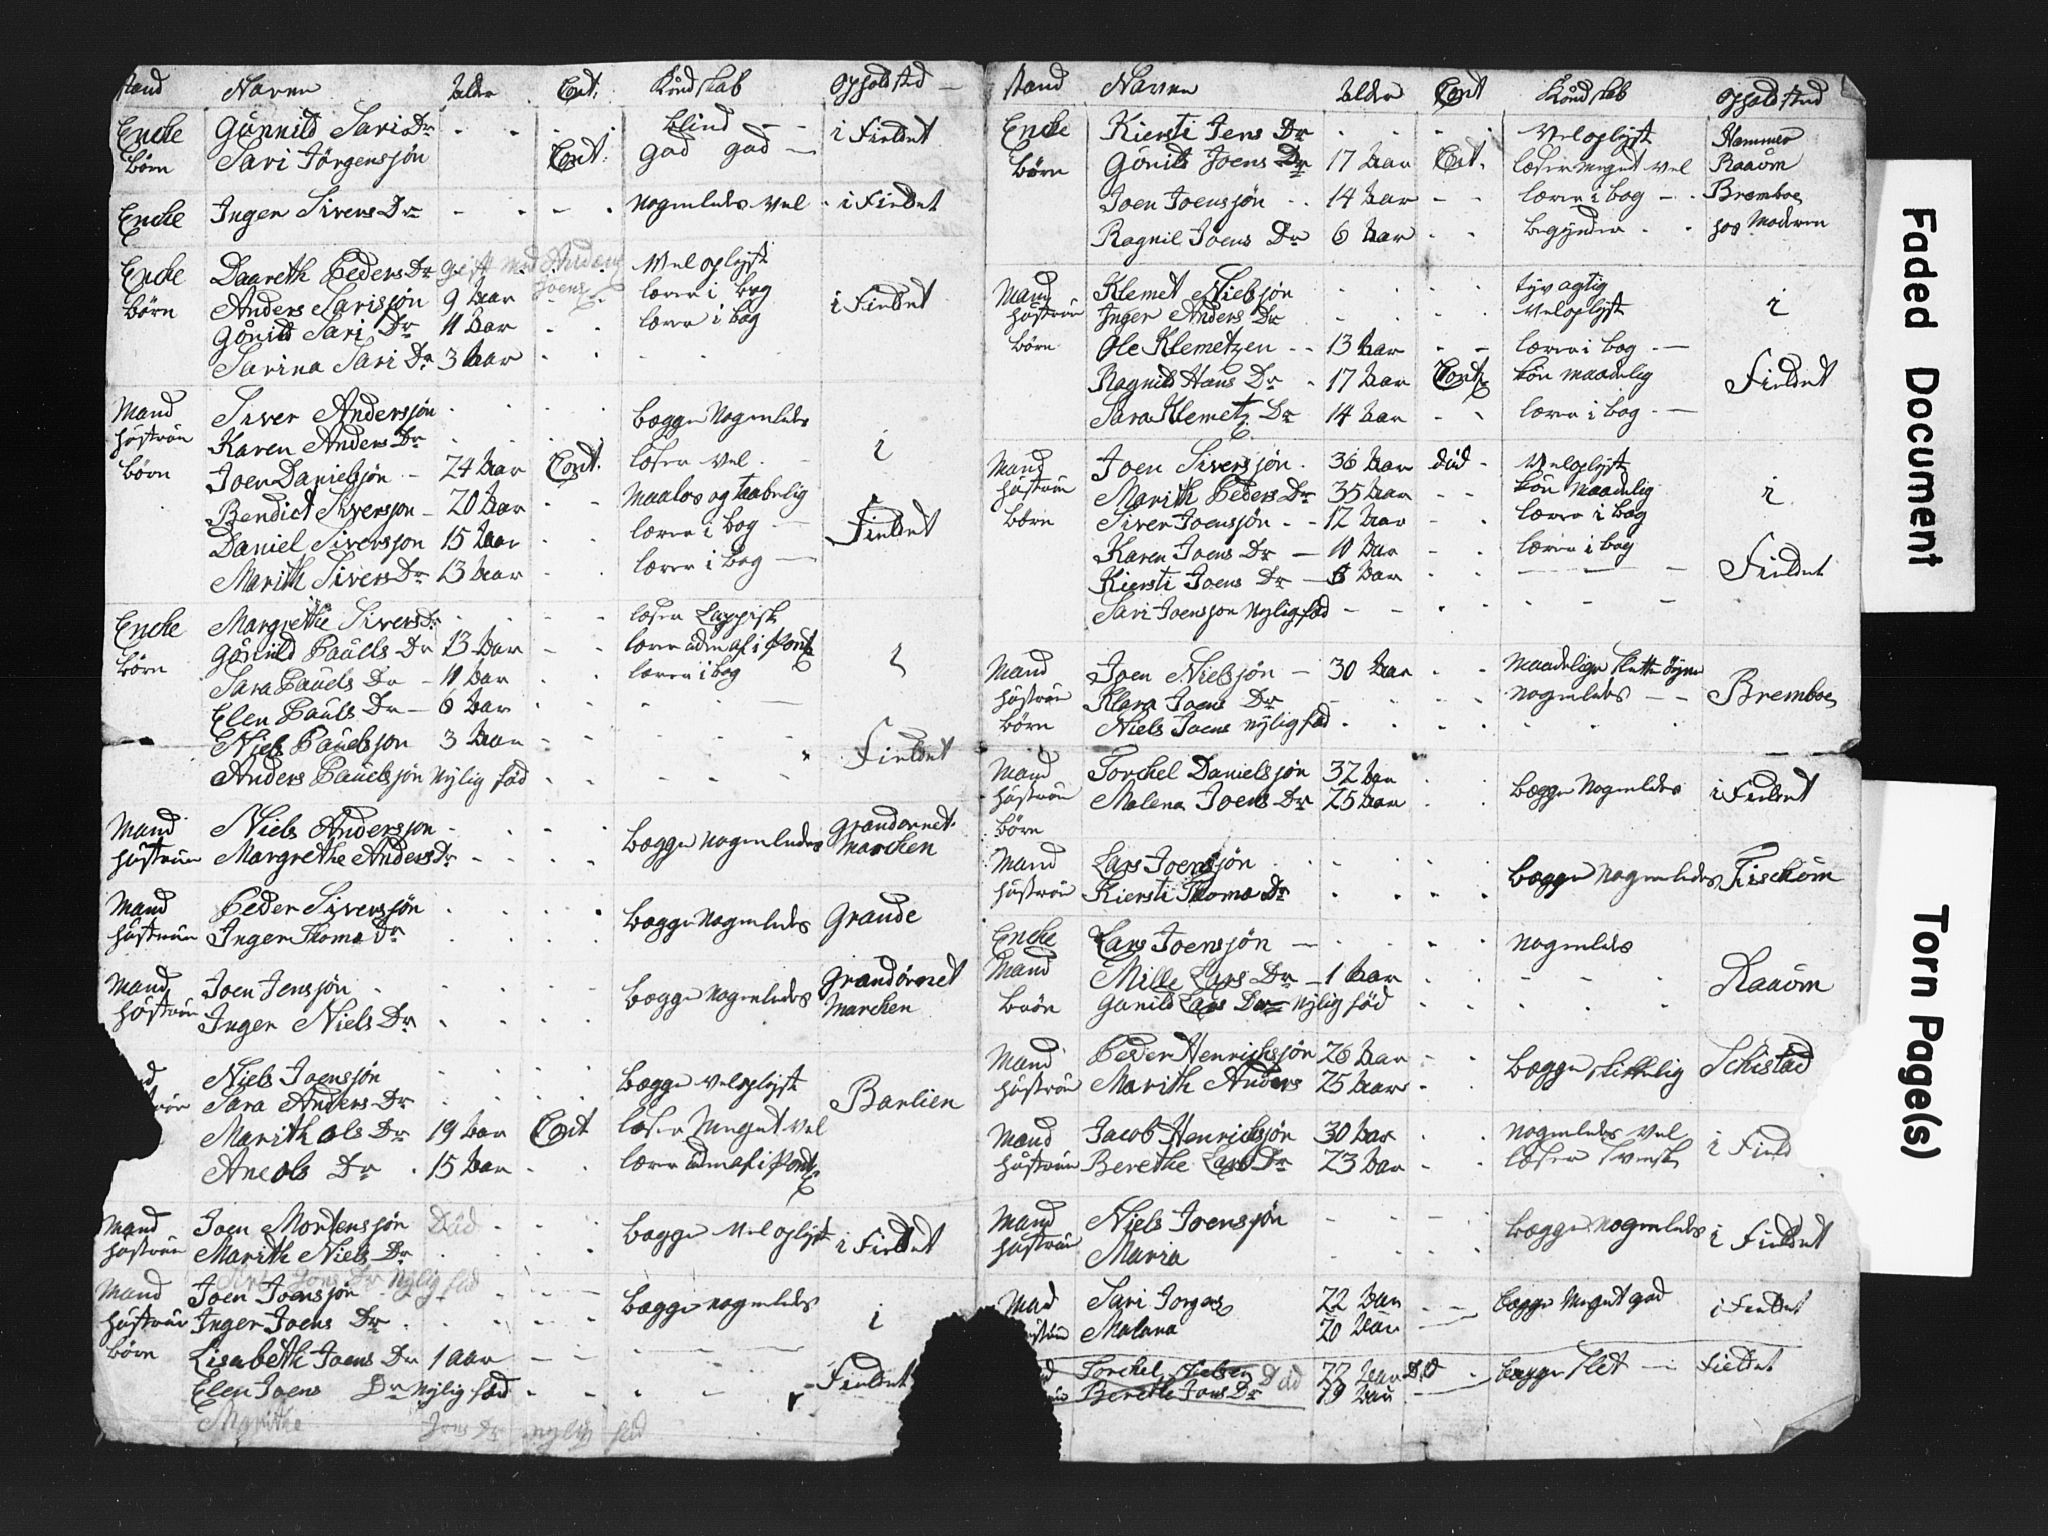 stand Navne Alder Cont: Kundskab Opholdsted
Encke Gunnild Sari Dr blind i Fieldet
börn Sari Jörgensjön Cont: god god
Encke Inger Sivers Dr nogenledes vel i Fieldet
Encke Daareth Peders Dr gift med Anders Joens vel oplyst
börn Anders Sarisjön 9 Aar lærer i bog i Fieldet
Gönild Sari Dr 11 Aar lærer i bog
Sarina Sari Dr 3 Aar
Mand Siver Andersjön bægge nogenledes i
hustrue Karen Anders Dr
börn Joen Danielsjön 24 Aar Cont: læser vel
Bendict Siversjon 20 Aar maalos og taabelig
Daniel Siversjon 15 Aar lærer i bog Fieldet
Marith Sivers Dr 13 Aar lærer i bog
Encke Margrethe Sivers Dr læser Lappisk
börn Gönild Pauels Dr 13 Aar lærer udenaf i Pont: i
Sara Pauels Dr 11 Aar lærer i bog
Elen Pauls Dr 6 Aar
Niels Pauelsjon 3 Aar Fieldet
Anders Pauelsjön Nylig föd
Mand Niels Andersjon bægge nogenledes Grandörnet
hustrue Margrethe Anders Dr Marchen
Mand Peder Siversjön bægge nogenledes Grande
hustrue Inger Thoma Dr
Mand Joen Jensjön bægge nogenledes Grandörnet
hustrue Inger Niels Dr Marchen
Niels Joensjön bægge vel oplyst
Sara Anders Dr Barlien
Marith Ols Dr 19 Aar Cont læser meget vel
Ane Ols Dr 15 Aar lærer udenaf i Pont:
Mand Joen Mortensjön Död bægge vel oplyst i Fieldet
hustrue Marith Niels Dr
Jons Dr Nylig föd
Mand Joen Joensjön bægge nogenledes i
hustrue Inger Joens Dr
börn Lisabeth Joens Dr 1 Aar Fieldet
Elen Joens Dr Nylig föd
Marithe Jons Dr nylig föd
stand Navne Alder Cont Kundskab Opholdsted
Encke Kiersti Jens Dr vel oplyst Hammer
börn Gönild Joens Dr 17 Aar Cont: læser meget vel Raaum
Joen Joensjön 14 Aar lærer i bog Bremboe
Ragnil Joens Dr 6 Aar begynder hos Moderen
Mand Klemet Nielsjön tyvagtig i
hustrue Inger Anders Dr vel oplyst
börn Ole Klemetzen 13 Aar lærer i bog
Ragnild Hans Dr 17 Aar Cont: kun maadelig Fieldet
Sara Klemetz Dr 14 Aar lærer i bog
Mand Joen Siversjön 36 Aar död vel oplyst
hustrue Marith Peders Dr 35 Aar kun maadelig i
börn Siver Joensjön 12 Aar lærer i bog
Karen Joens Dr 10 Aar lærer i bog
Kiersti Joens Dr 3 Aar Fieldet
Sari Joensjon Nylig föd
Mand Joen Nielsjön 30 Aar Maadelige slette öyne
hustrue Klara Joens Dr nogenledes Bremboe
börn Niels Joens nylig föd
Mand Torchel Danielsjön 32 Aar bægge nogenledes i Fieldet
hustrue Malena Joens Dr 25 Aar
börn
Mand Lars Joensjön bægge nogenledes Fischum
hustrue Kiersti Thoma Dr
Encke Lars Joensjön nogenledes
Mand Mille Lars Dr 1 Aar Raaum
börn Gunild Lars Dr nylig föd
Mand Peder Henrichsjön 26 Aar bægge skikkelig Schistad
hustrue Marith Anders 25 Aar
Mand Jacob Henrichsjön 30 Aar nogenledes vel i Field
hustrue Berethe Lars Dr 23 Aar læser svensk
Mand Niels Joensjön bægge nogenledes i Fieldet
hustrue Maria
Mand Sari Jorgens 22 Aar bægge meget god i Fieldet
Malana 20 Aar
Torchel Nielsen Död 22 Aar Död bægge slet Fieldet
Berethe Jons Dr 19 Aar
Faded Document
Torn Page(s)